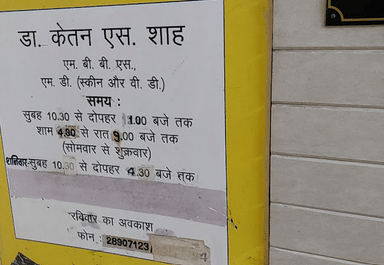 डा. केतन एस. शाह
एम. बी. बी. एस.,
एम. डी. (स्कीन और वी. डी.)
समय :
सुबह 10.30 से दोपहर 1.00 बजे तक
शाम 4.30 से रात 9.00 बजे तक
(सोमवार से शुक्रवार)
शनिवार-सुबह 10.30 से दोपहर 4.30 बजे तक
रविवार का अवकाश
फोन : 28907123